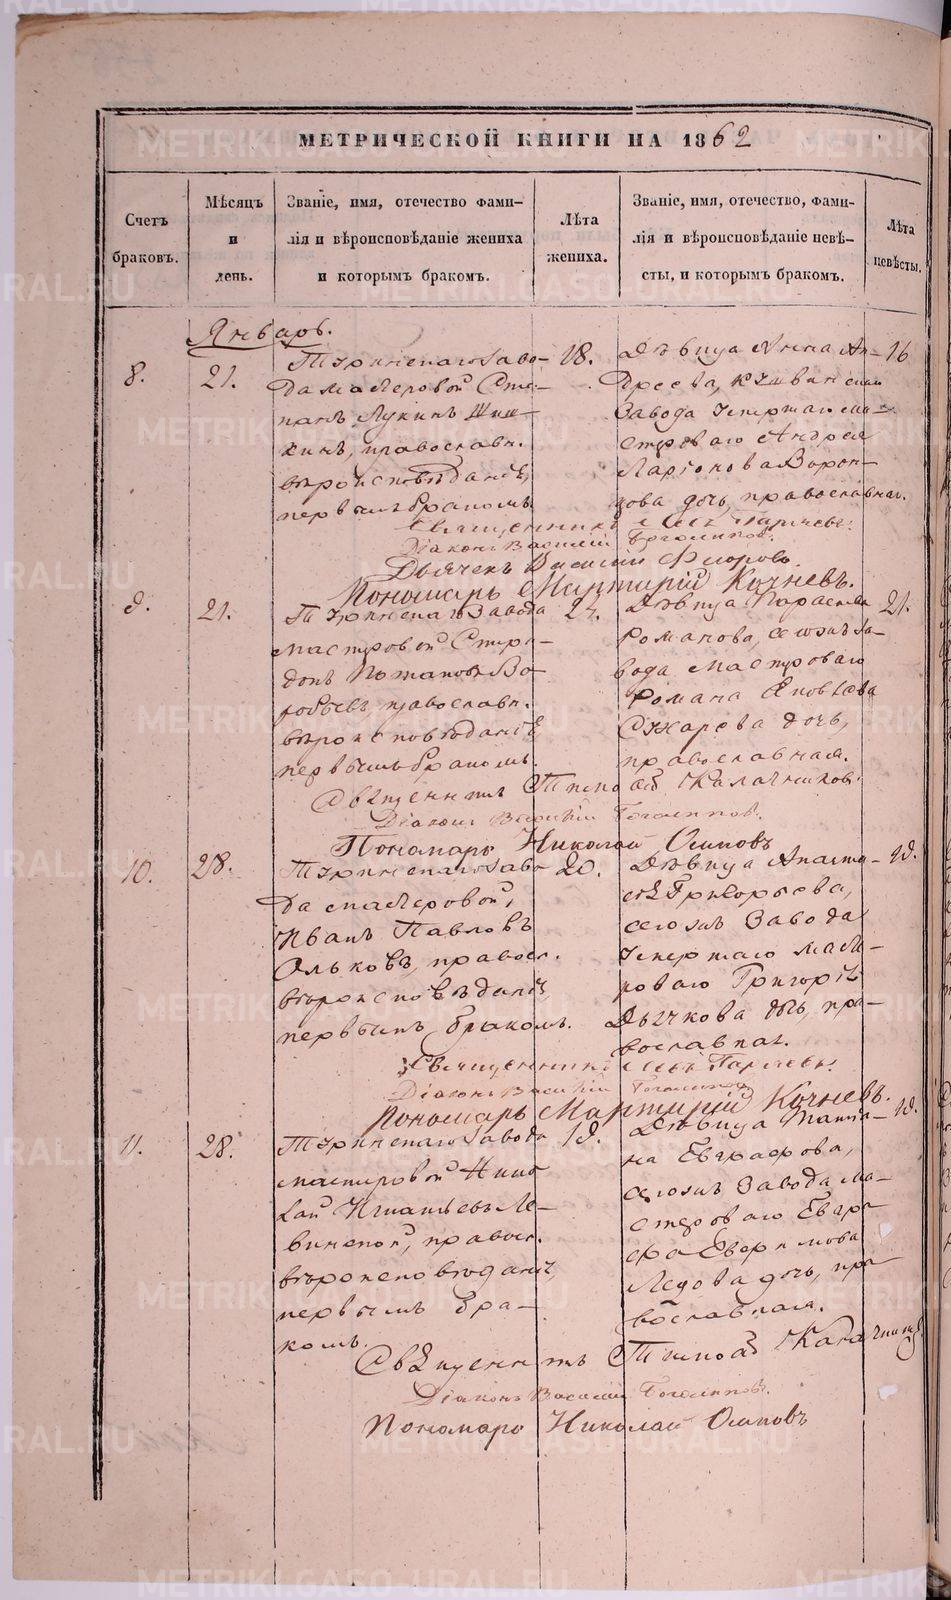 МЕТРИЧЕСКОЙ КНИГИ НА 1862
Счетъ браковъ.
Мѣсяцъ и день.
Званіе, имя, отечество фами-
лія и вѣроисповѣданіе жениха
и которымъ бракомъ.
Лѣта жениха.
Званіе, имя, отечество, фами-
лія и вѣроисповѣданіе невѣ-
сты, и которымъ бракомъ.
Лѣта невѣсты.
Январь.
8.
21.
Туринскаго Заво-
да мастеровой Сте-
панъ Лукинъ Шиш-
кинъ, православн.
вѣроисповѣданія,
первымъ бракомъ
18.
Дѣвица Анна Ан-
дреева, Кушвинскаго
Завода умершаго ма-
стероваго Андрея
Ларіонова Ворон-
цова дочь, православная.
16
Священникъ
Діаконъ Василій Боголеповъ.
Дьячекъ Василій Флоровъ.
Пономарь Мартирій Кочневъ.
9.
21.
Туринскаго Завода
мастеровой Спири-
донъ Потаповъ Во-
робьевъ, православн.
вѣроисповѣданія,
первымъ бракомъ.
Дѣвица Параскева
Романова, сегожъ За-
вода мастероваго
Романа Яковлева
Сухарева дочь,
православная.
21.
Священникъ Тимофей Калачниковъ
Діаконъ Василій Боголеповъ.
Пономарь Николай Осиповъ
10.
28.
Туринскаго Заво-
да мастеровой,
Иванъ Павловъ
Ольковъ, правосл.
вѣроисповѣданія,
первымъ бракомъ.
20.
Дѣвица Анаста-
сія Григорьева,
сегожъ Завода
умершаго масте-
роваго Григорія
Дьячкова дочь, пра-
вославная.
19.
Священникъ
Діаконъ Василій Боголеповъ
Пономарь Мартирій Кочневъ.
11.
28.
Туринскаго Завода
мастеровой Нико-
лай Игнатьевъ Ле-
винской, правосл.
вѣроисповѣданія,
первымъ бра-
комъ.
19.
Дѣвица Татья-
на Евграфова,
сегожъ Завода ма-
стероваго Евгра-
фа
дочь, пра-
вославная.
19.
Священникъ Тимофей Калачниковъ
Діаконъ Василій Боголеповъ.
Пономарь Николай Осиповъ
METRIKI.GASO-URAL.RU